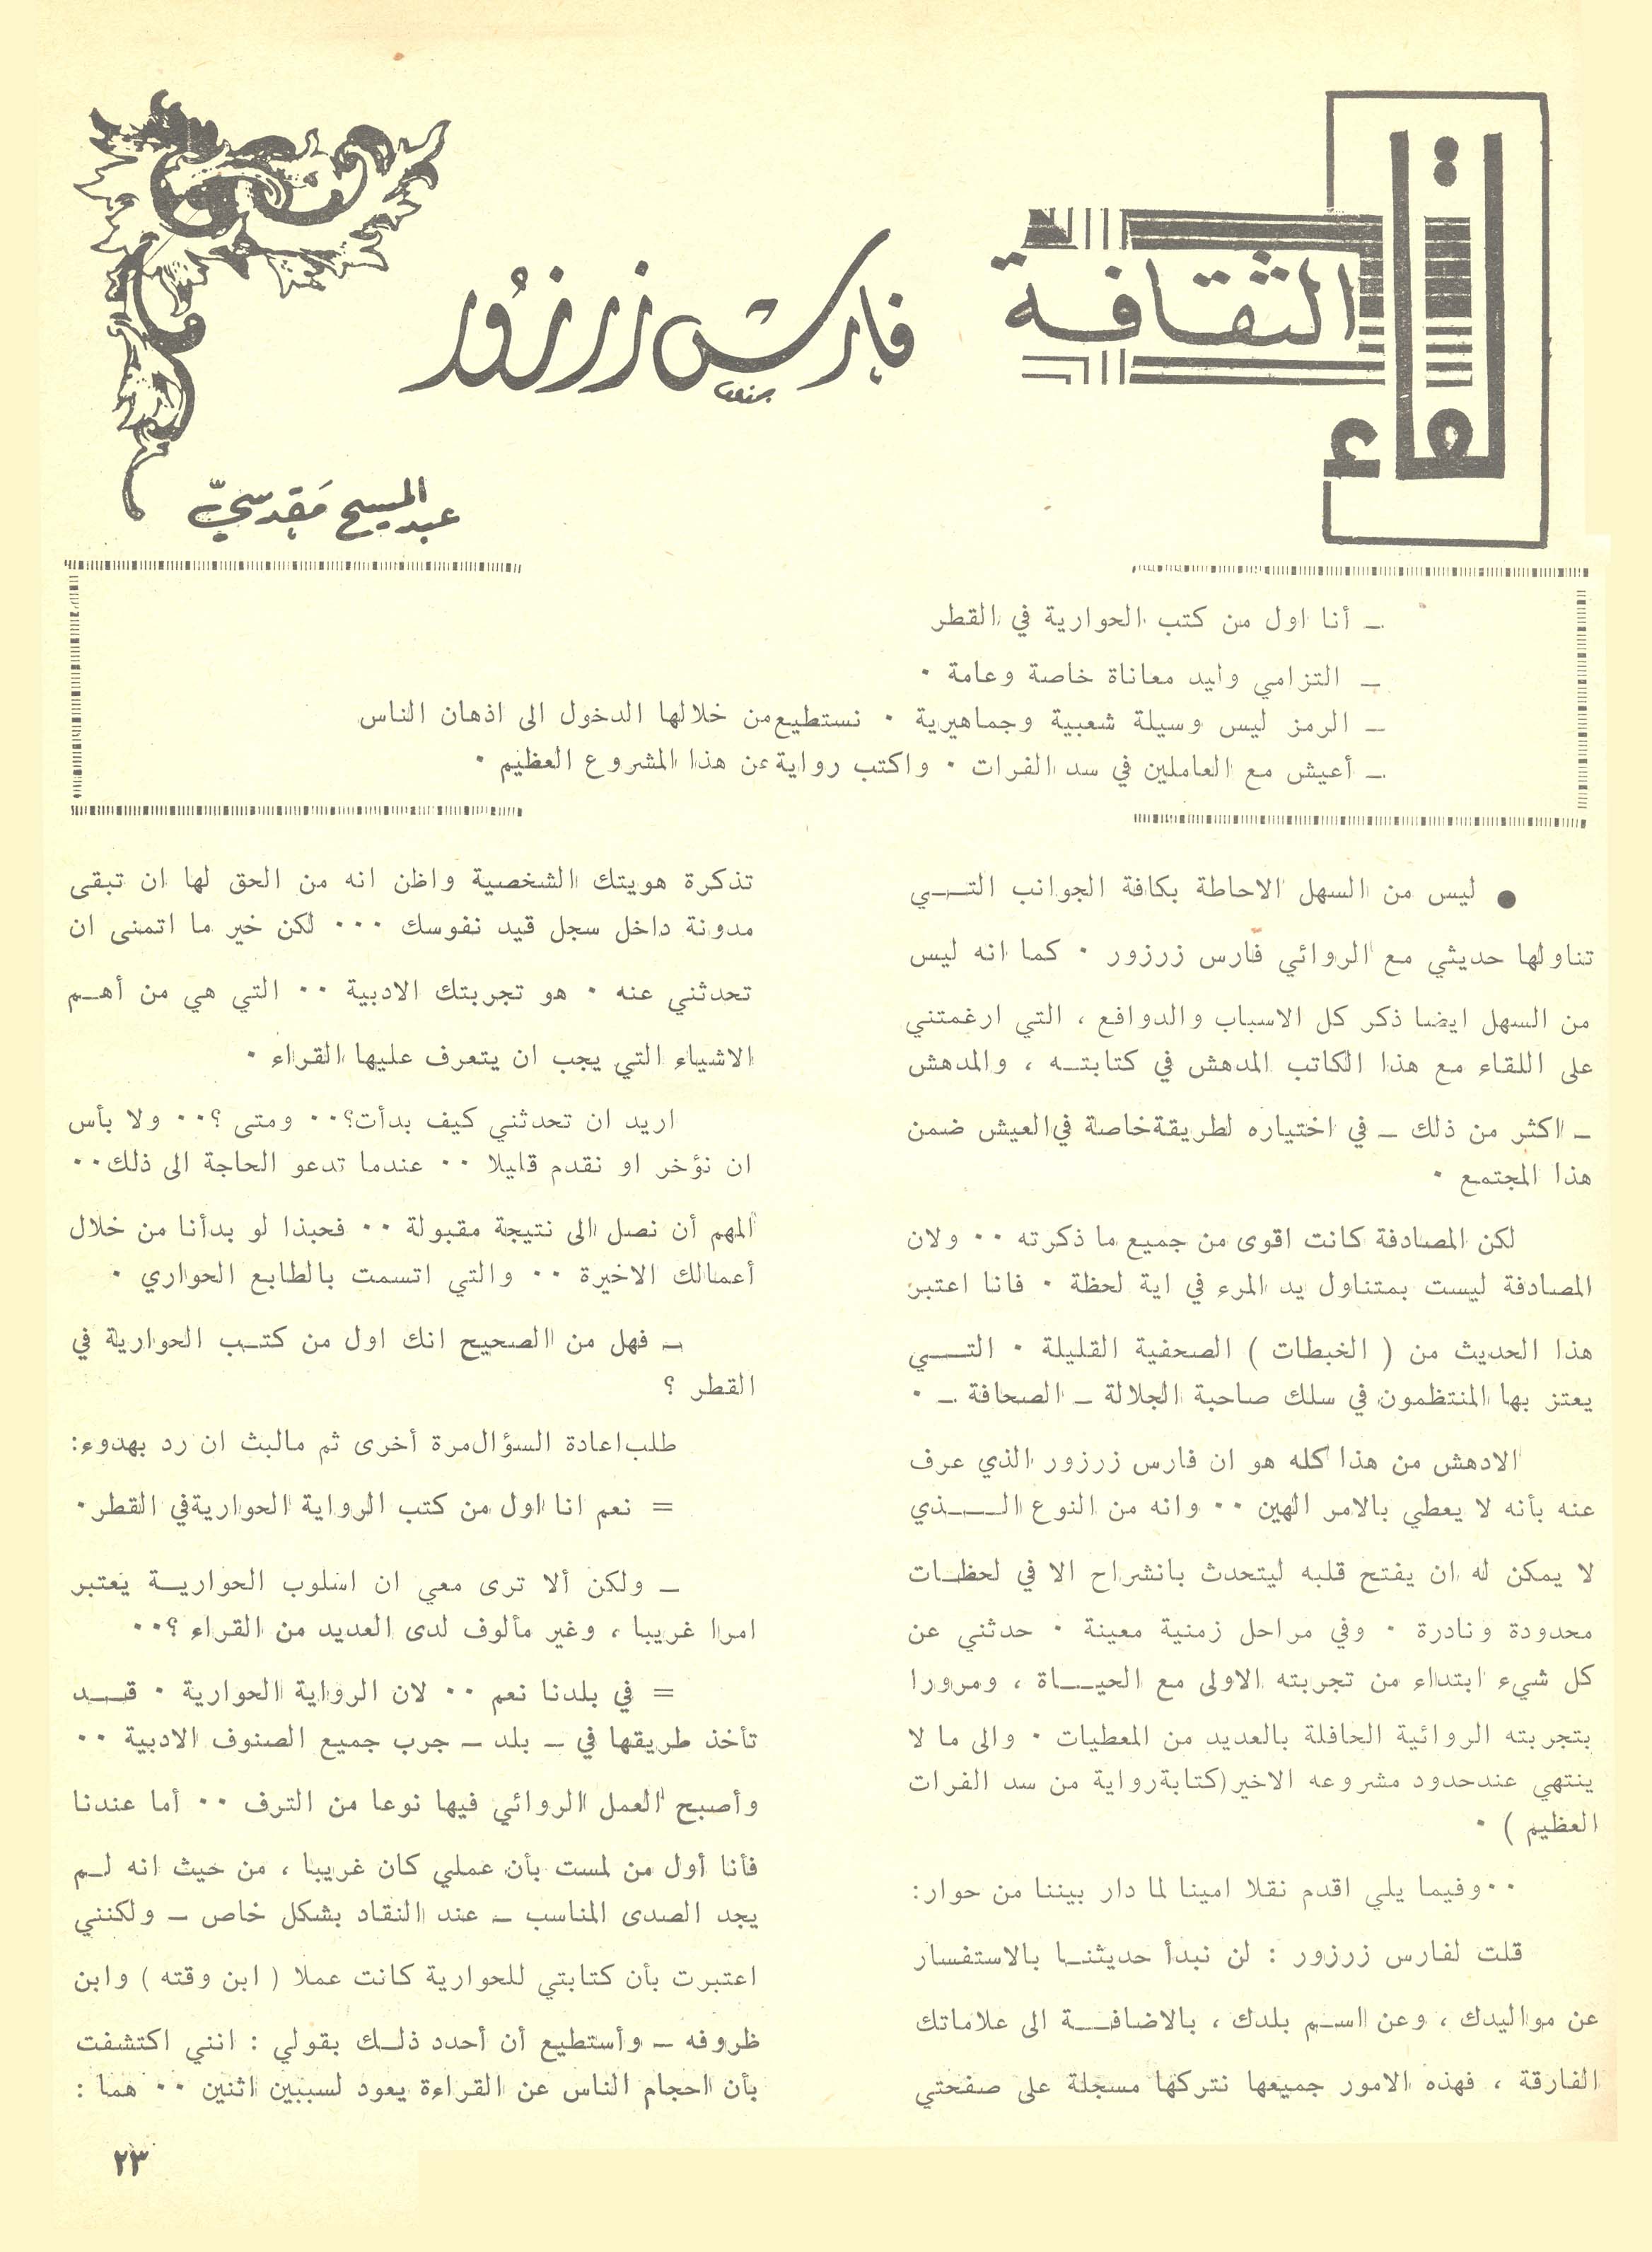 لقاء
الثقافة
فارس زرزور
عبد المسيح مقدسي
ـ أنا اول من كتب الحوارية في القطر
ـ التزامي وليد معاناة خاصة وعامة ٠
ـ الرمز ليس وسيلة شعبية وجماهيرية ٠ نستطيع من خلالها الدخول الى اذهان الناس
ـ أعيش مع العاملين في سد الفرات ٠ واكتب رواية عن هذا المشروع العظيم ٠
● ليس من السهل الاحاطة بكافة الجوانب التـــي
تناولها حديثي مع الروائي فارس زرزور ٠ كما انه ليس
من السهل ايضا ذكر كل الاسباب والدوافع ، التي ارغمتني
على اللقاء مع هذا الكاتب المدهش في كتابتــه ، والمدهش
ـ اكثر من ذلك ـ في اختياره لطريقة خاصة في العيش ضمن
هذا المجتمع ٠
لكن المصادفة كانت اقوى من جميع ما ذكرته ٠٠ ولان
المصادفة ليست بمتناول يد المرء في اية لحظة ٠ فانا اعتبر
هذا الحديث من ( الخبطات ) الصحفية القليلة ٠ التـــي
يعتز بها المنتظمون في سلك صاحبة الجلالة ـ الصحافة ـ ٠
الادهش من هذا كله هو ان فارس زرزور الذي عرف
عنه بأنه لا يعطي بالامر الهين ٠٠ وانه من النوع الــــذي
لا يمكن له ان يفتح قلبه ليتحدث بانشراح الا في لحظــات
محدودة ونادرة ٠ وفي مراحل زمنية معينة ٠ حدثني عن
كل شيء ابتداء من تجربته الاولى مع الحيـــاة ، ومرورا
بتجربته الروائية الحافلة بالعديد من المعطيات ٠ والى ما لا
ينتهي عند حدود مشروعه الاخير (كتابة رواية من سد الفرات
العظيم ) ٠
٠٠ وفيما يلي اقدم نقلا امينا لما دار بيننا من حوار :
قلت لفارس زرزور : لن نبدأ حديثنــا بالاستفسار
عن مواليدك ، وعن اســم بلدك ، بالاضافـــة الى علاماتك
الفارقة ، فهذه الامور جميعها نتركها مسجلة على صفحتي
تذكرة هويتك الشخصية واظن انه من الحق لها ان تبقى
مدونة داخل سجل قيد نفوسك ٠٠٠ لكن خير ما اتمنى ان
تحدثني عنه ٠ هو تجربتك الادبية ٠٠ التي هي من أهــم
الاشياء التي يجب ان يتعرف عليها القراء ٠
اريد ان تحدثني كيف بدأت؟٠٠ ومتى ؟٠٠ ولا بأس
ان نؤخر او نقدم قليلا ٠٠ عندما تدعو الحاجة الى ذلك٠٠
المهم أن نصل الى نتيجة مقبولة ٠٠ فحبذا لو بدأنا من خلال
أعمالك الاخيرة ٠٠ والتي اتسمت بالطابع الحواري ٠
ـ فهل من الصحيح انك اول من كتــب الحوارية في
القطر ؟
طلب اعادة السؤال مرة أخرى ثم مالبث ان رد بهدوء:
= نعم انا اول من كتب الرواية الحوارية في القطر٠
ـ ولكن ألا ترى معي ان اسلوب الحواريــة يعتبر
امرا غريبا ، وغير مألوف لدى العديد من القراء ؟٠٠
= في بلدنا نعم ٠٠ لان الرواية الحوارية ٠ قـــد
تأخذ طريقها في ـ بلد ـ جرب جميع الصنوف الادبية ٠٠
وأصبح العمل الروائي فيها نوعا من الترف ٠٠ أما عندنا
فأنا أول من لمست بأن عملي كان غريبا ، من حيث انه لــم
يجد الصدى المناسب ـ عند النقاد بشكل خاص ـ ولكنني
اعتبرت بأن كتابتي للحوارية كانت عملا ( ابن وقته ) وابن
ظروفه ـ وأستطيع أن أحدد ذلــك بقولي : انني اكتشفت
بأن احجام الناس عن القراءة يعود لسببين اثنين ٠٠ هما :
٢٣